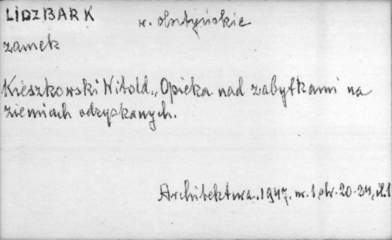 LIDZBARK w. olsztyńskie
zamek
Kieszkowski Witold „Opieka nad zabytkami na
ziemiach odzyskanych.
Architektura. 1947. nr. 1, str. 20-24, il. 1